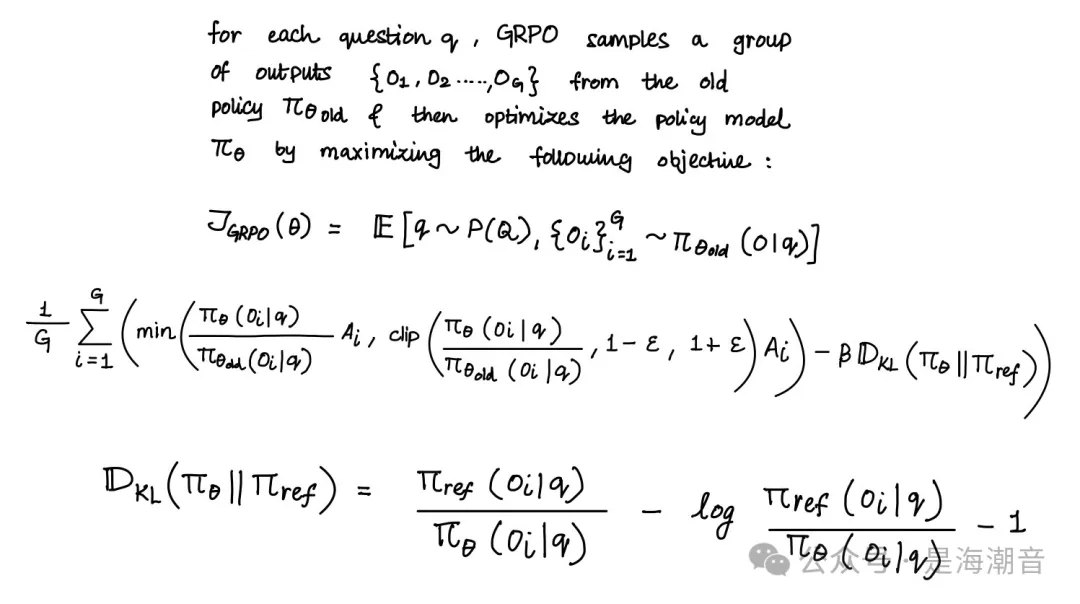 for each question q, GRPO samples a group
of outputs {O₁, O₂ ....., O_G} from the old
policy π_θold & then optimizes the policy model
π_θ by maximizing the following objective :
J_GRPO(θ) = 𝔼[q ~ P(Q), {O_i}_{i=1}^G ~ π_θold(O|q)]
1/G ∑_{i=1}^G ( min( π_θ(O_i|q) / π_θold(O_i|q) A_i, clip( π_θ(O_i|q) / π_θold(O_i|q), 1 - ε, 1 + ε) A_i ) - β 𝔻_KL(π_θ || π_ref) )
𝔻_KL(π_θ || π_ref) = π_ref(O_i|q) / π_θ(O_i|q) - log π_ref(O_i|q) / π_θ(O_i|q) - 1
公众号 · 是海潮音